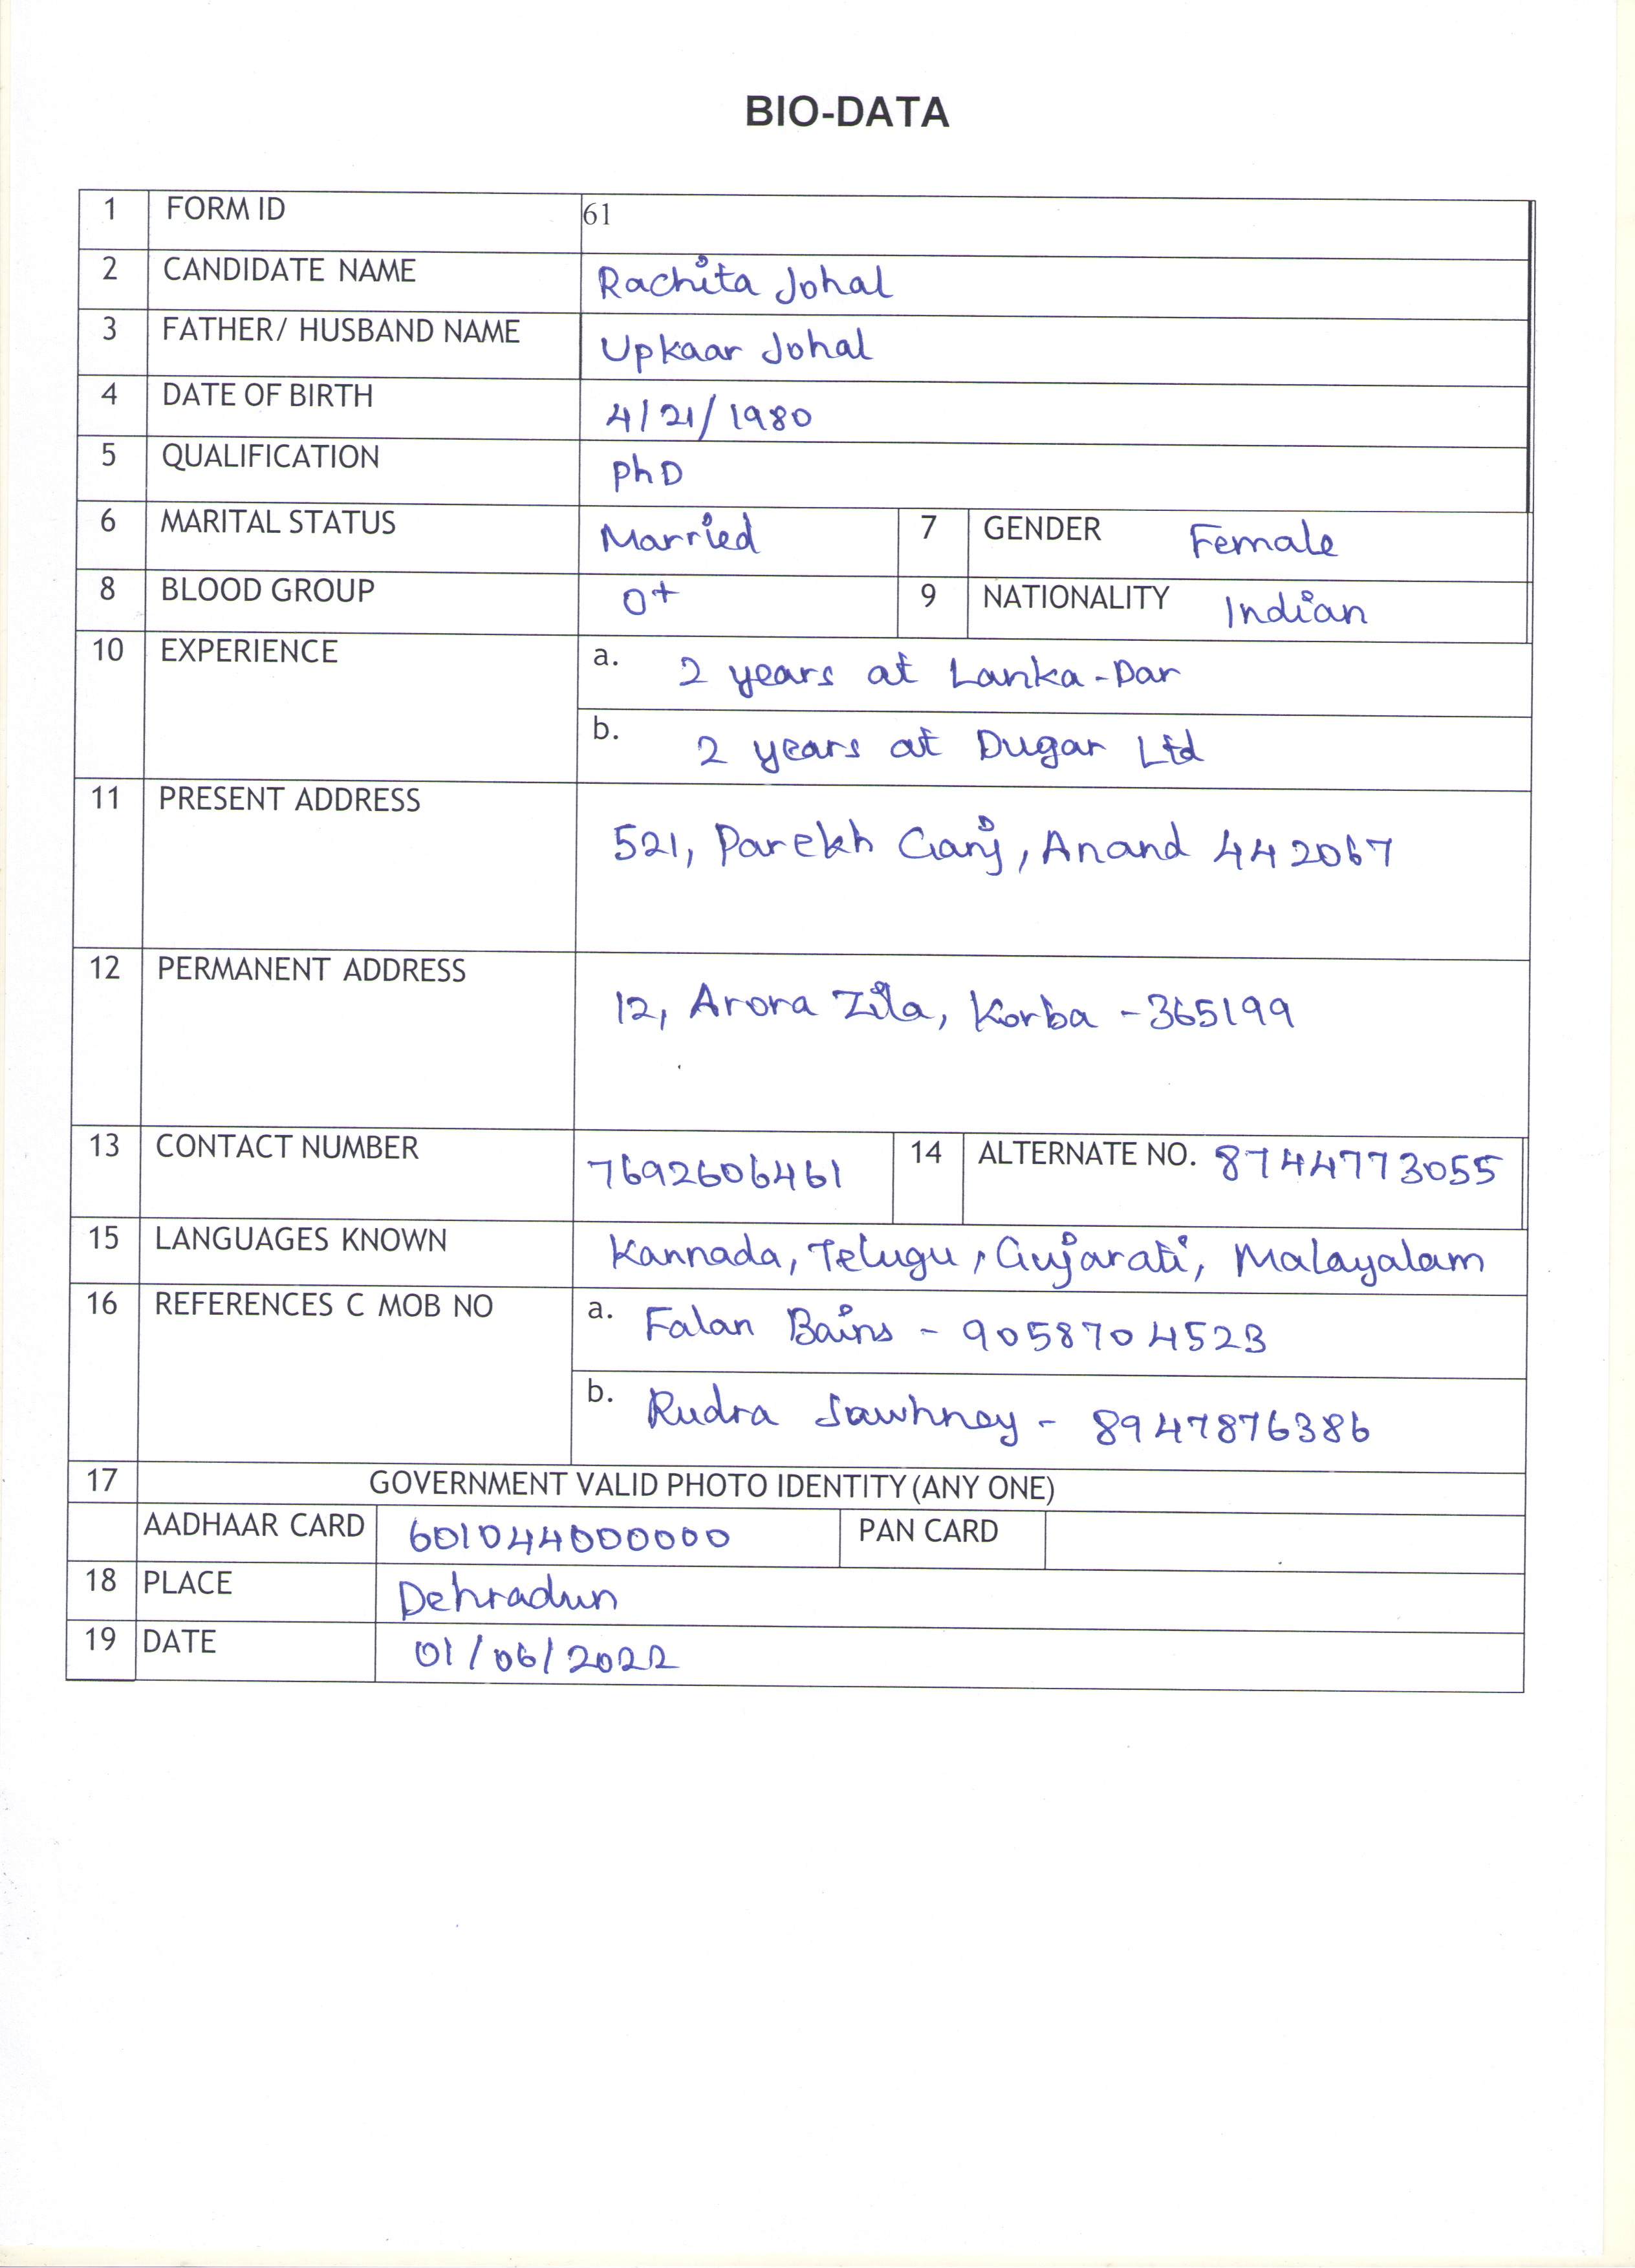 BIO-DATA
1 FORM ID 61
2 CANDIDATE NAME Rachita Johal
3 FATHER/ HUSBAND NAME Upkaar Johal
4 DATE OF BIRTH 4/21/1980
5 QUALIFICATION PhD
6 MARITAL STATUS Married 7 GENDER Female
8 BLOOD GROUP O+ 9 NATIONALITY Indian
10 EXPERIENCE a. 2 years at Lanka-Dar
b. 2 years at Dugar Ltd
11 PRESENT ADDRESS
521, Parekh Ganj, Anand 442067
12 PERMANENT ADDRESS
12, Arora Zila, Korba -365199
13 CONTACT NUMBER 7692606461 14 ALTERNATE NO. 8744773055
15 LANGUAGES KNOWN Kannada, Telugu, Gujarati, Malayalam
16 REFERENCES C MOB NO a. Falan Bains - 9058704523
b. Rudra Sawhney - 8947876386
17 GOVERNMENT VALID PHOTO IDENTITY (ANY ONE)
AADHAAR CARD 601044000000 PAN CARD
18 PLACE Dehradun
19 DATE 01/06/2022